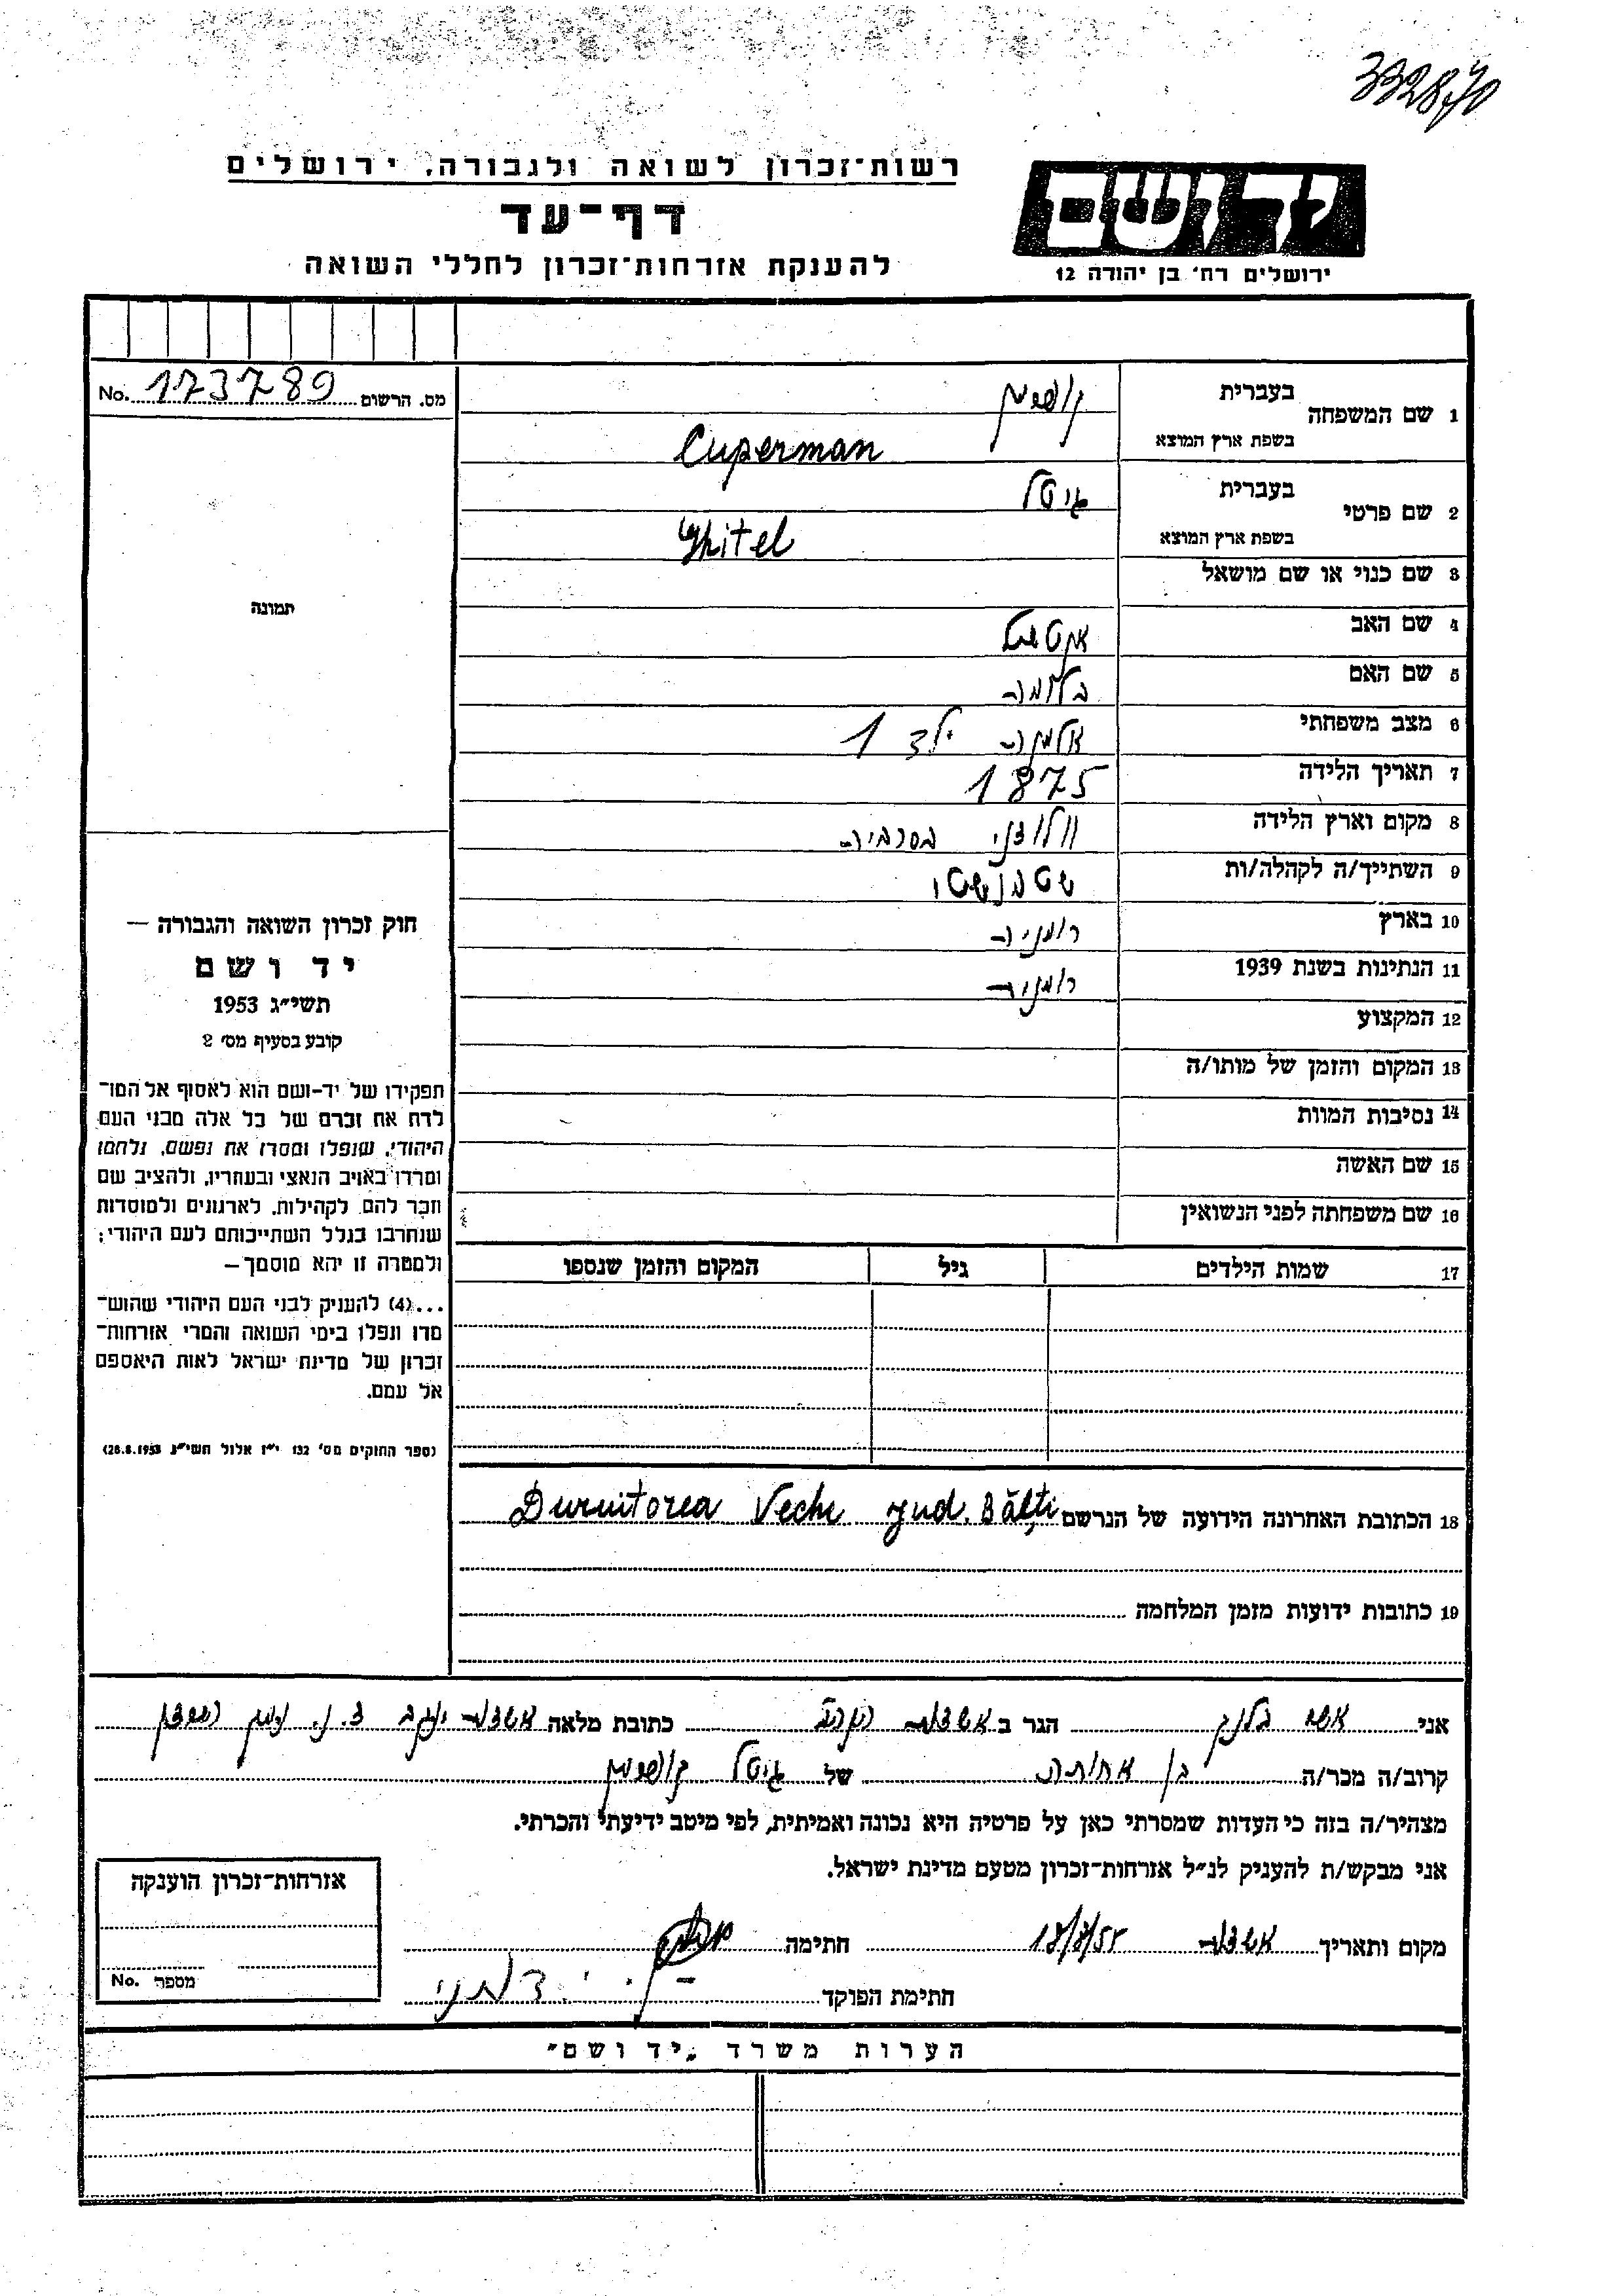 332840
רשות־זכרון לשואה ולגבורה, ירושלים
דף־עד
להענקת אזרחות־זכרון לחללי השואה
יד ושם
ירושלים רח׳ בן יהודה 12
No. 173789 מס. הרשום
תמונה
חוק זכרון השואה והגבורה —
יד ושם
תשי״ג 1953
קובע בסעיף מס׳ 2
תפקידו של יד-ושם הוא לאסוף אל המו־
לדת את זכרם של כל אלה מבני העם
היהודי, שנפלו ומסרו את נפשם, נלחמו
ומרדו באויב הנאצי ובעוזריו, ולהציב שם
וזכר להם, לקהילות, לארגונים ולמוסדות
שנחרבו בגלל השתייכותם לעם היהודי;
ולמטרה זו יהא מוסמך —
...(4) להעניק לבני העם היהודי שהוש־
מדו ונפלו בימי השואה והמרי אזרחות־
זכרון של מדינת ישראל לאות היאספם
אל עמם.
(ספר החוקים מס׳ 132 י״ז אלול תשי״ג 28.8.1953)
1 שם המשפחה בעברית קופרמן
בשפת ארץ המוצא Cuperman
2 שם פרטי בעברית גיטל
בשפת ארץ המוצא Ghitel
3 שם כנוי או שם מושאל
4 שם האב
5 שם האם
6 מצב משפחתי אלמנה ילד 1
7 תאריך הלידה 1875
8 מקום וארץ הלידה בסרביה
9 השתייך/ה לקהלה/ות
10 בארץ רומניה
11 הנתינות בשנת 1939 רומניה
12 המקצוע
13 המקום והזמן של מותו/ה
14 נסיבות המוות
15 שם האשה
16 שם משפחתה לפני הנשואין
17 שמות הילדים גיל המקום והזמן שנספו
18 הכתובת האחרונה הידועה של הנרשם Duruitorea Veche jud. Bălți
19 כתובות ידועות מזמן המלחמה
אני אשר הגר ב כתובת מלאה
קרוב/ה מכר/ה בן אחותה של גיטל קופרמן
מצהיר/ה בזה כי העדות שמסרתי כאן על פרטיה היא נכונה ואמיתית, לפי מיטב ידיעתי והכרתי.
אני מבקש/ת להעניק לנ״ל אזרחות-זכרון מטעם מדינת ישראל.
מקום ותאריך חתימה
חתימת הפוקד
אזרחות-זכרון הוענקה
No. מספר
הערות משרד „יד ושם״